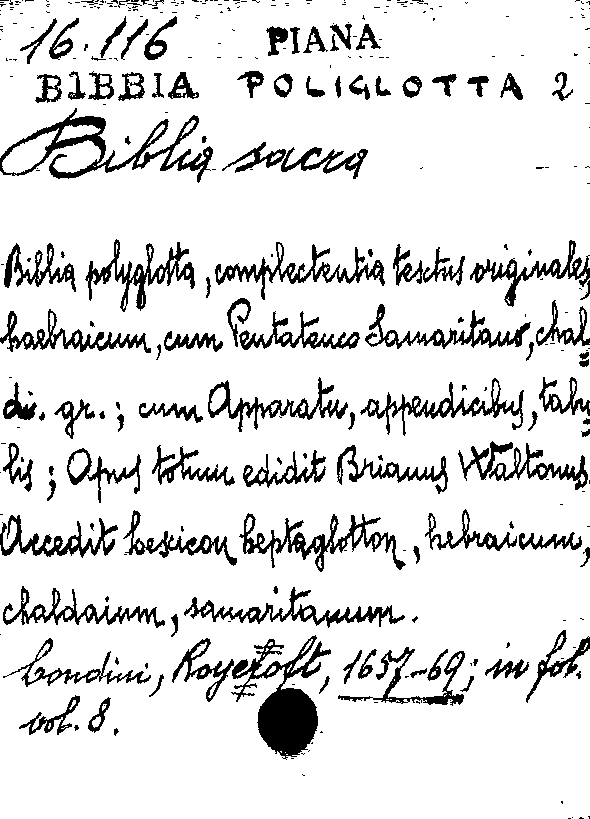 16.116 PIANA
BIBBIA POLIGLOTTA 2
Biblia sacra
Biblia polyglotta, complectentia textus originales,
haebraicum, cum Pentateuco Samaritano, chal=
di. gr.; cum Apparatu, appendicibus, tabu=
lis; Opus totum edidit Brianus Waltonus.
Accedit Lexicon heptaglotton, hebraicum,
chaldaium, samaritanum.
Londini, Roycroft, 1657-69; in fol.
vol. 8.